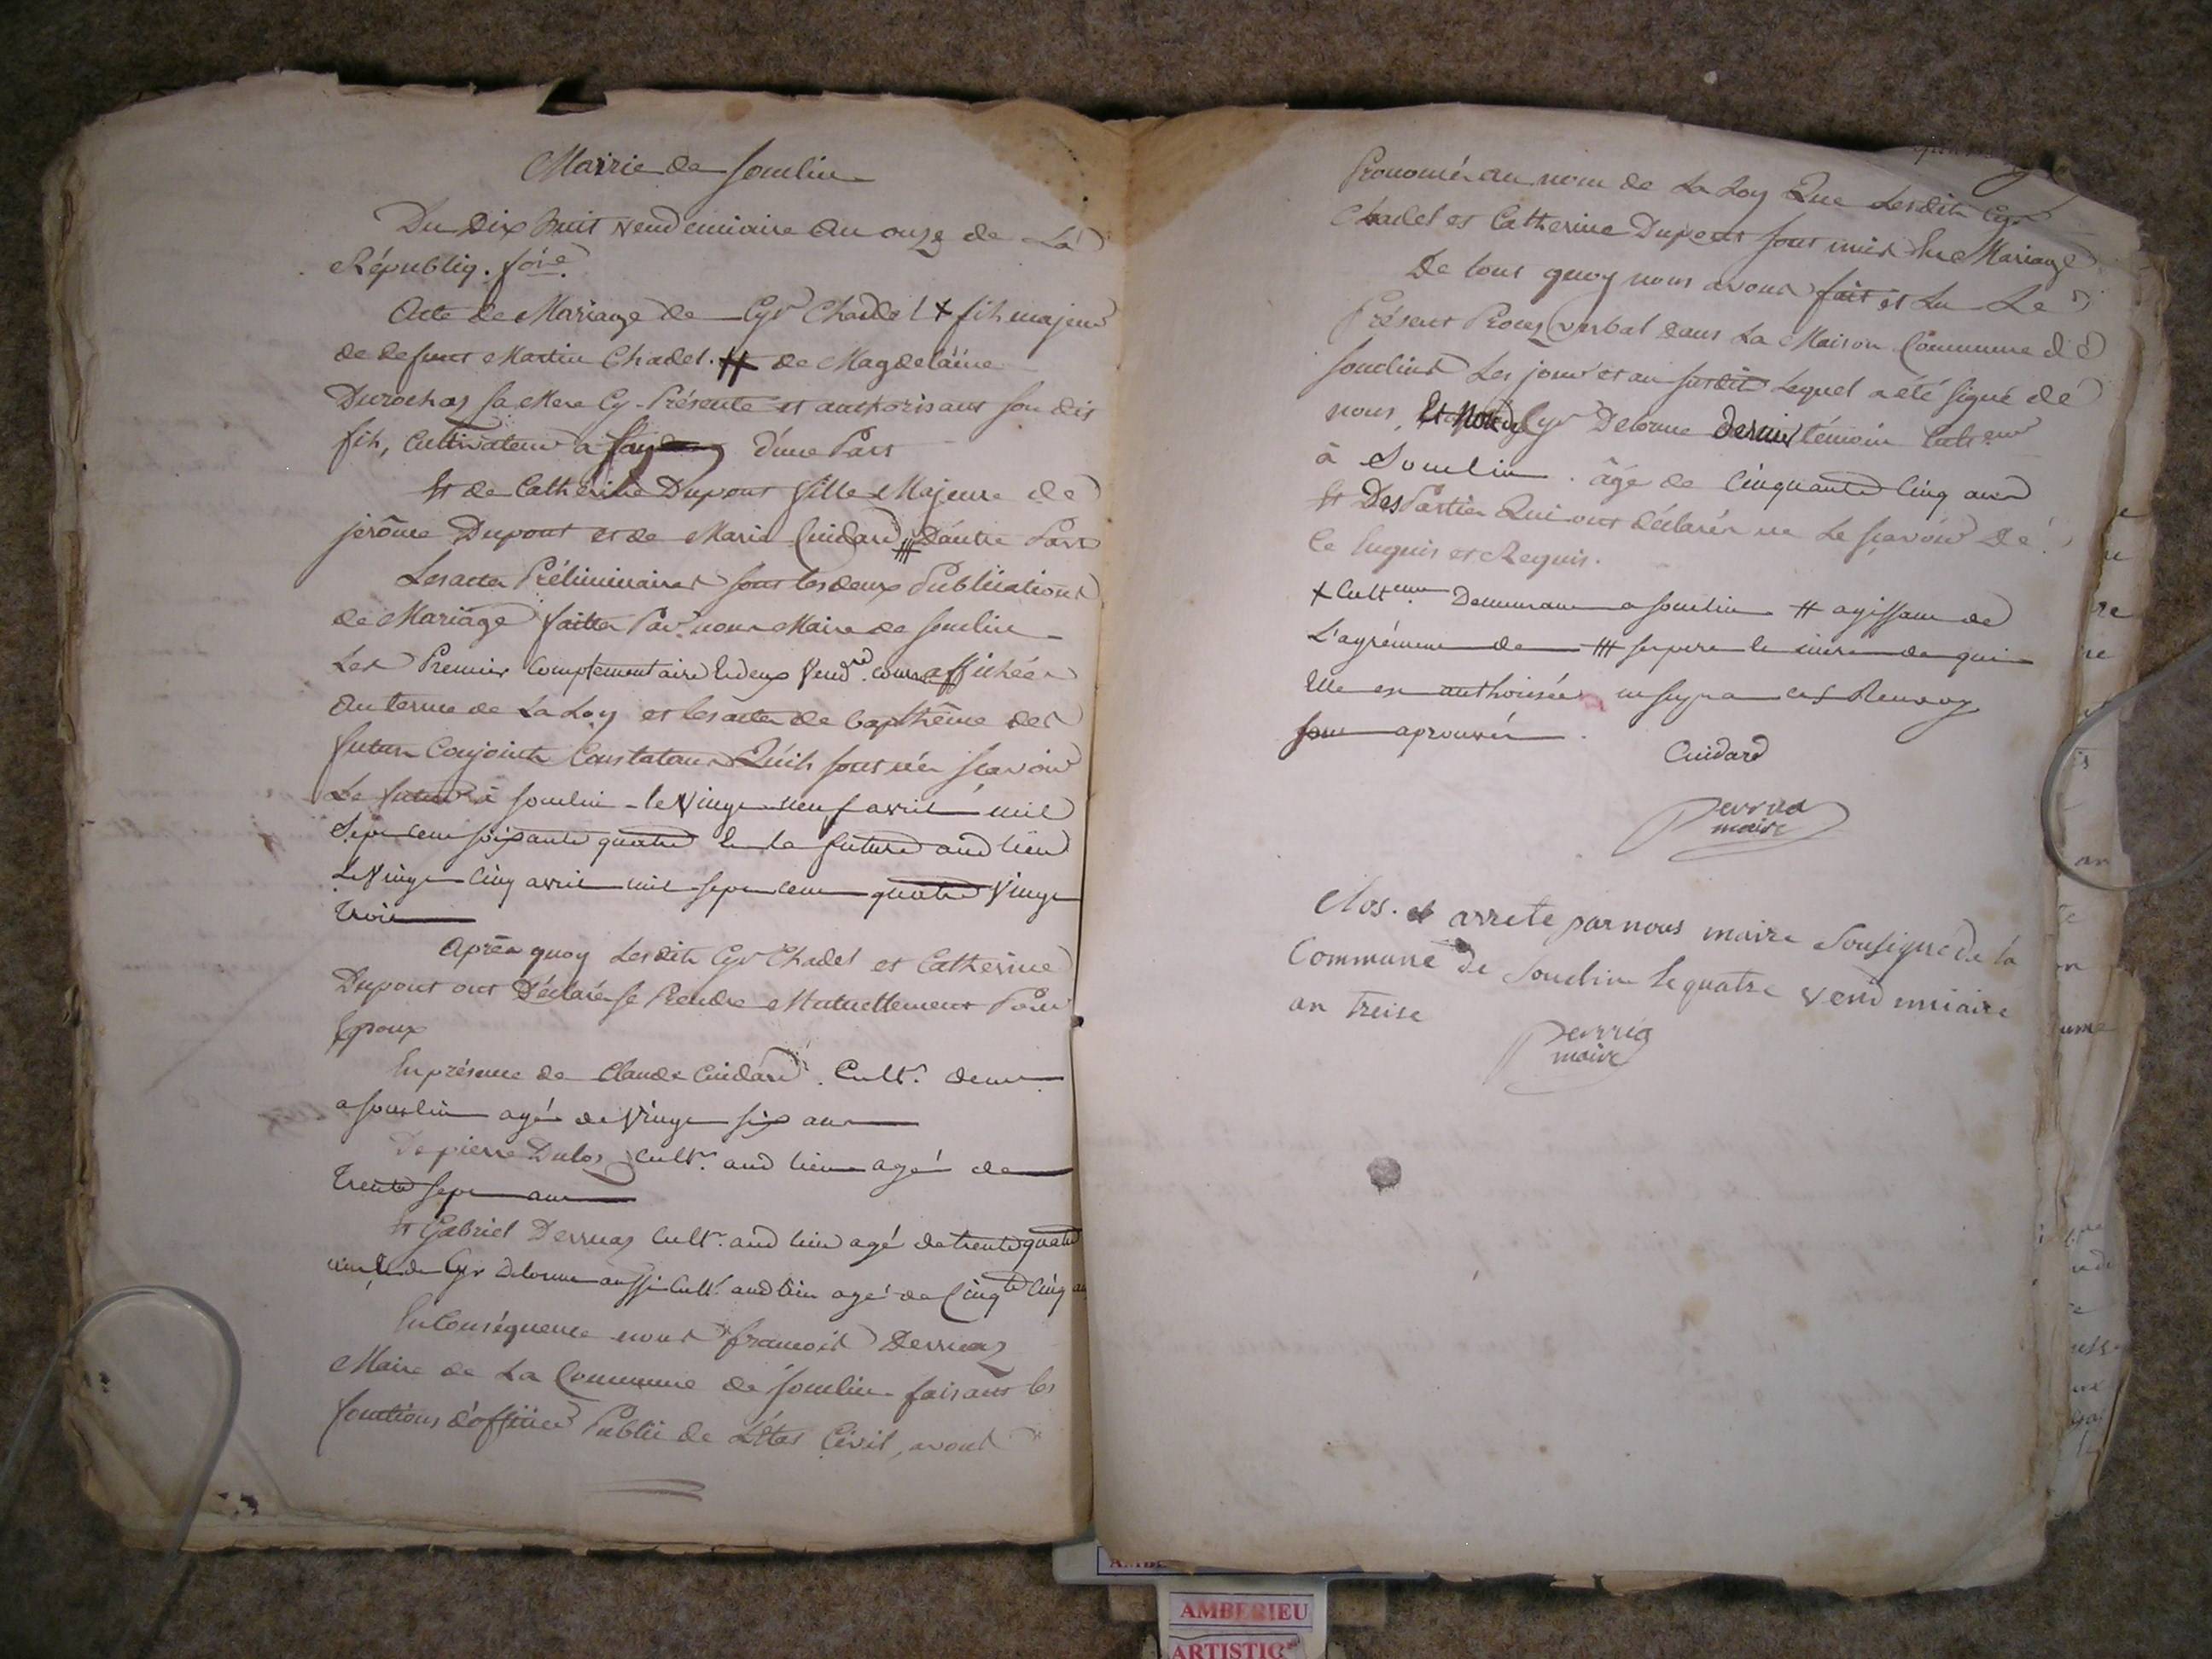 Mairie de Soudin
Du Dix huit vendemiaire an onze de La
Républiq. fçaise
Acte de Mariage de Cyr Chadel + fils majeur
de defunt Martin Chadel. # de Magdelaine
Durochaz sa Mere Cy Présente et authorisant son dit
fils, Cultivateur a d'une Part
Et de Catherine Dupont fille Majeure de
jerôme Dupont et de Marie Cuidard ## D'autre Part
Les actes Préliminaires sont les deux Publications
de Mariage faittes Par nous Maire de Soudin
Les Premier Complementaire et deux Vendre. affichées
au terme de La Loy et les actes de Bapthême des
futurs Conjoints Constatant Qu'ils sont nés sçavoir
Le futur à Soudin le Vingt neuf avril mil
Sept cent soixante quatre Et la future aud lieu
Le Vingt Cinq avril mil sept cent quatre Vingt
trois
Après quoy Lesdits Cyr Chadel et Catherine
Dupont ont Déclaré se Prendre Mutuellement Pour
Epoux
En présence de Claude Cuidard. Cultr. demt
a Soudin agé de Vingt six ans
De pierre Dulos Cultr. aud lieu agé de
trente sept ans
Et Gabriel Derruaz Cultr. aud lieu agé de trente quatre
Et de Cyr Delorme aussi Cultr. aud lieu agé de Cinqte Cinq ans
En Conséquence nous françois Derruaz
Maire de La Commune de Soudin faisant les
fonctions d'officier Public de L'Etat Civil, avons
Prononcé au nom de La Loy Que Lesdits Cyr
Chadel et Catherine Dupont sont unis En Mariage
De tout quoy nous avons fait et Lu Le
Présent Procez verbal dans La Maison Commune de
Soudin Les jour et an susdit Lequel a été signé de
nous, Cyr Delorme dernier témoin Culteur
à Soudin. âgé de Cinquante Cinq ans
Et Des Parties Qui ont déclarés ne Le sçavoir De
Ce Enquis et Requis.
+ Culteur Demeurant a Soudin # agissant de
L'agrément de ## son pere le mere de qui
Elle est authorisée ces Renvoy
sont aprouvés.
Cuidard
maire
Clos. et arrete par nous maire Sousigné de la
Commune de Soudin le quatre vendemiaire
an treise
maire
AMBERIEU
ARTISTIC